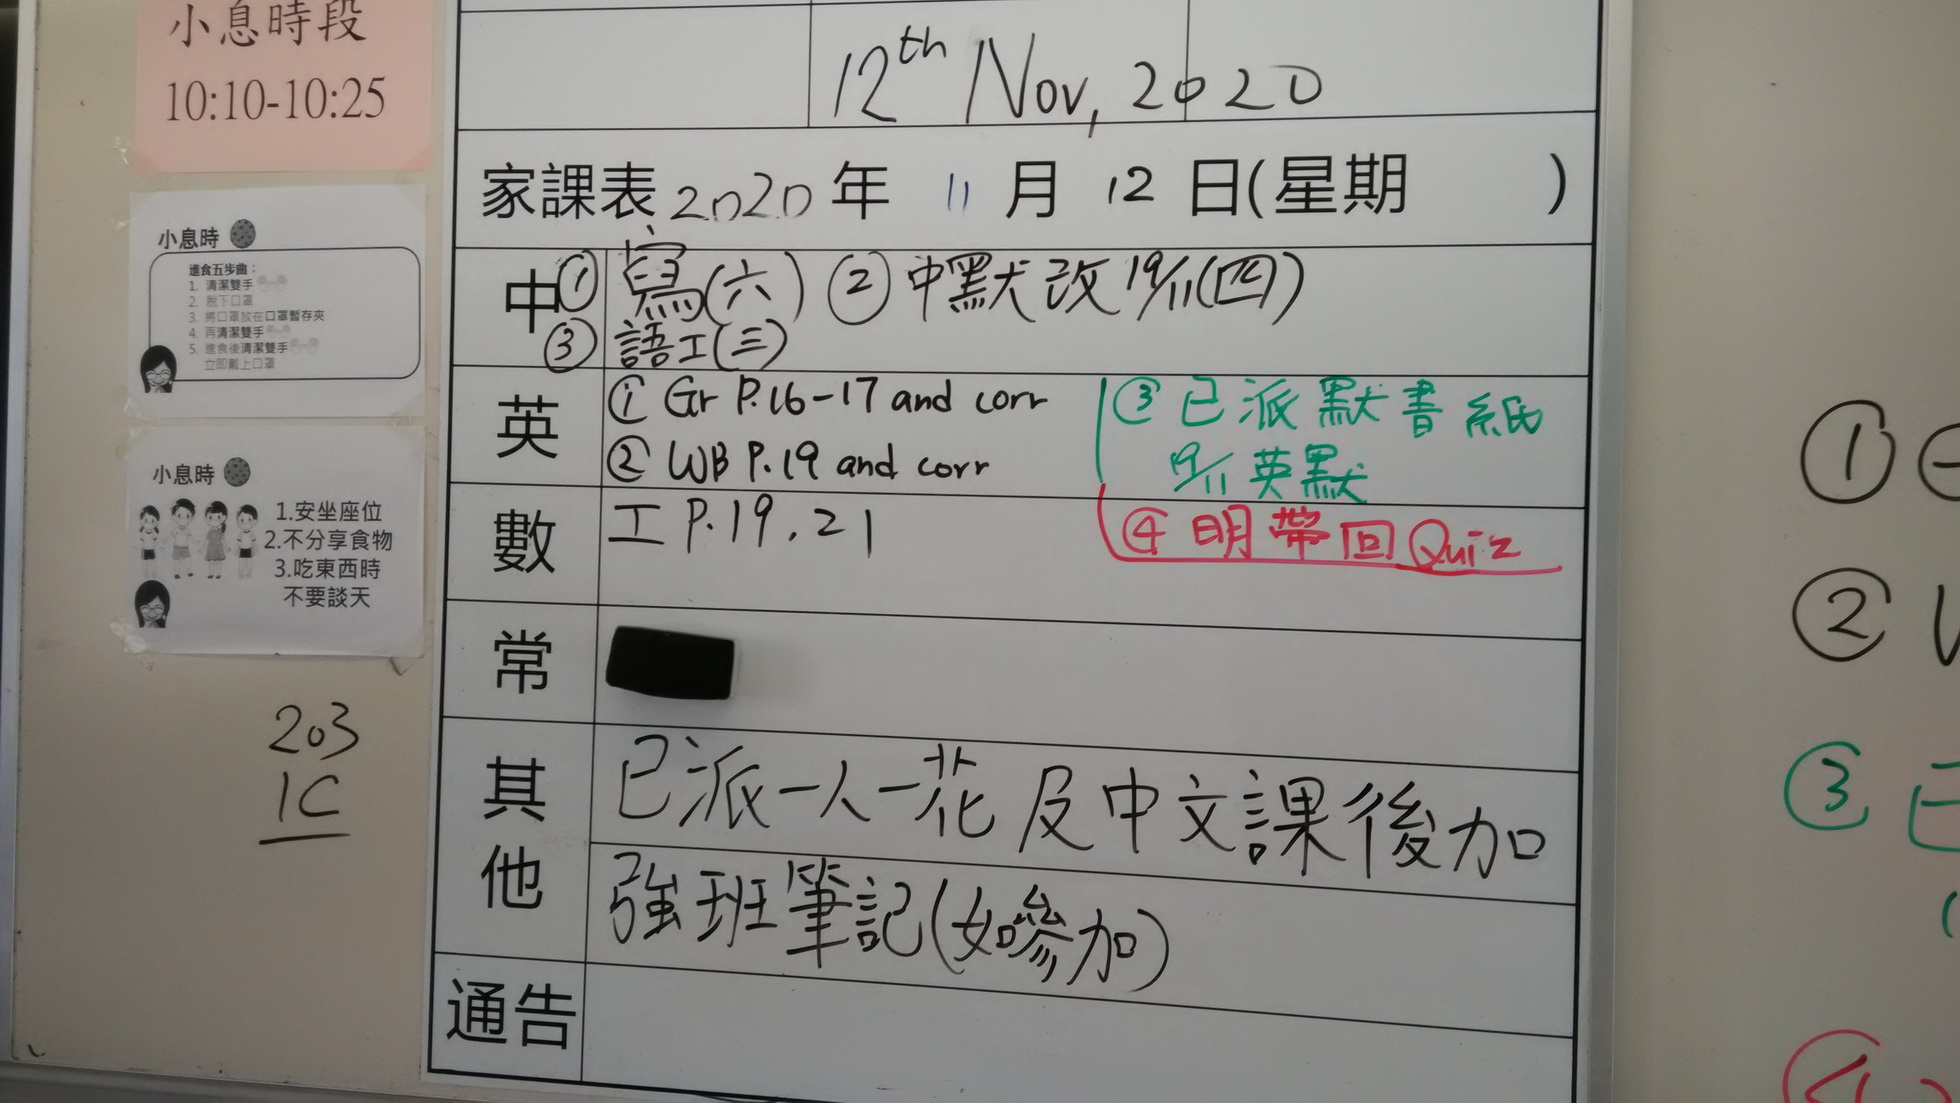 小息時段
10:10-10:25
小息時
進食五步曲：
1. 清潔雙手
2. 脫下口罩
3. 將口罩放在口罩暫存夾
4. 再清潔雙手
5. 進食後清潔雙手
立即戴上口罩
小息時
1.安坐座位
2.不分享食物
3.吃東西時
不要談天
203
1C
12th Nov, 2020
家課表 2020 年 11 月 12 日(星期 )
中 ① 寫(六) ② 中默改 19/11(四)
③ 語工(三)
英 ① Gr P.16-17 and corr
② WB P.19 and corr
③ 已派默書紙
19/11 英默
④ 明帶回 Quiz
數 工 P.19, 21
常
其他
已派一人一花 及中文課後加
強班筆記(如參加)
通告
①
②
③ 已